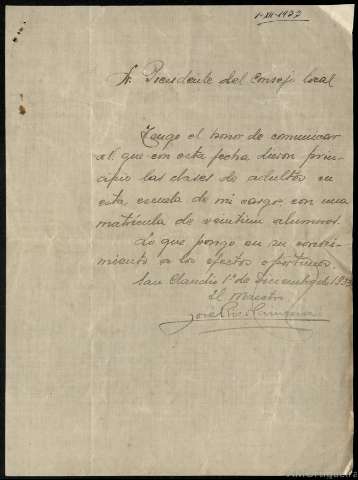 1-XII-1933
Sr. Presidente del Consejo local
Tengo el honor de comunicar
a V. que con esta fecha dieron prin-
cipio las clases de adultos en
esta escuela de mi cargo, con una
matrícula de veintiun alumnos.
Lo que pongo en su conoci-
miento a los efectos oportunos.
San Claudio 1º de Diciembre de 1933
El Maestro
José